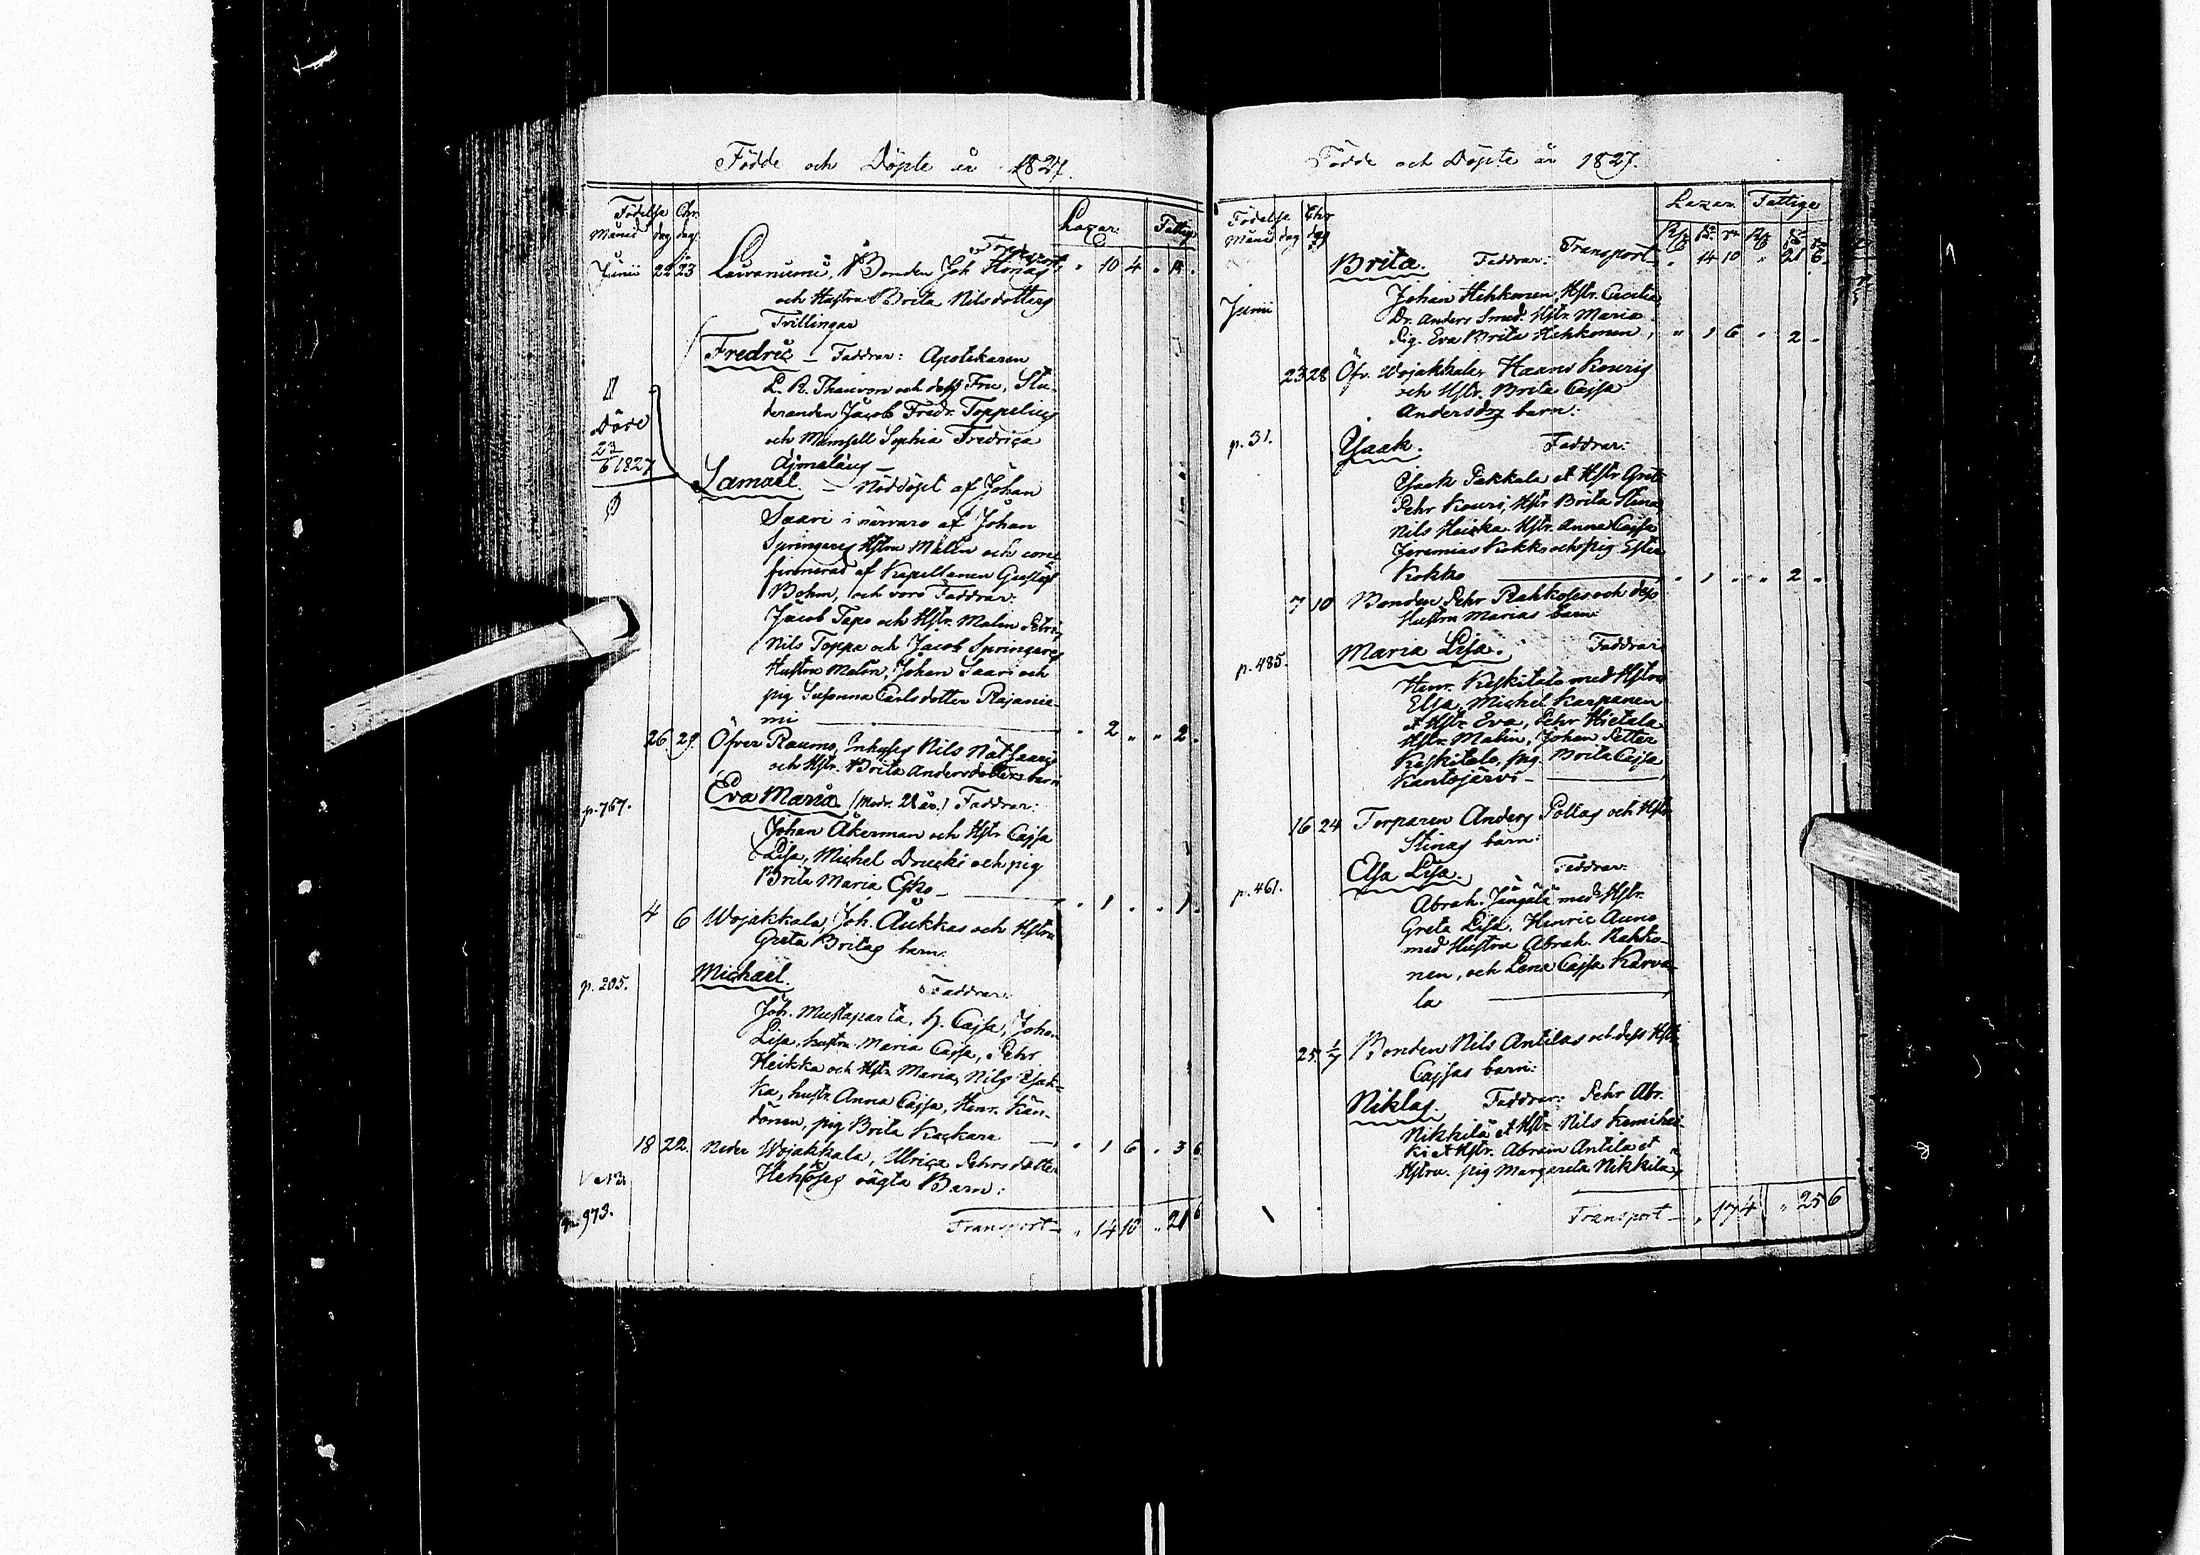 Födde och Döpte år 1827.
Födelse Chr.
Månad dag dag
Lazar. Fattig
Transport
Junii 22 23 Laivaniemi, Bonden Joh. " 10 4 "
och Hustru Brita Nilsdotters
Tvillingar
Fredric – Faddrar: Apotekaren
L. R. Thauvon och dess Fru, Stu-
deranden Jacob Fredr. Toppelius
och Mamsell Sophia Fredrica
Döde
23/6 1827
Samuel. – Nöddöpt af Johan
Saari i närvaro af Johan
Springares Hstru Malin och con-
firmerad af Kapellanen Gustaf
Bohm, och voro Faddrar:
Jacob Tapo och Hstr. Malin
Nils Toppa och Jacob Springares
Hustru Malin, Johan Saari och
pig Susanna Carlsdotter Rajanie-
mi " 2 " " 2 "
26 29 Öfver Raumo, Inhyses Nils
och Hstr. Brita Andersdotters barn
p. 767. Eva Maria (Modr. 28 år.) Faddrar:
Johan Åkerman och Hstr Cajsa
Lisa, Michel och pig
Brita Maria Esko – " 1 " " 1 "
4 6 Wojakkala, Joh. Aukkas och Hstru
Greta Britas barn.
p. 205. Michael. Faddrar:
Joh. Mustaparta, h. Cajsa, Joh.
Lisa, hustru Maria Cajsa, Pehr
Heikka och Hstr. Maria, Nils
ka, hustr. Anna Cajsa, Henr. Kän-
pig Brita Kackara " 1 6 " 3 6
18 22. Neder Wojakkala, Ulrica Pehrsdotter
oägta Barn:
p. 973.
Transport – " 14 10 " 21 6
Födde och Döpte år 1827.
Födelse Chr
Månad dag dag
Lazar. Fattige
Brita. Faddrar: Transport " 14 10 " 21 6
Junii Johan Hehkonen, Hstr. Cecilia
Dr. Anders Hstr. Maria
Pig. Eva Brita Hehkonen, " 1 6 " 2 "
23 28 Öfv. Wojakkala, Haans Kouris
och Hstr. Brita Cajsa
Andersdrs barn:
p. 31. Isaak. Faddrar:
Isaak Pakkala et Hstr Greta
Pehr Kouri, Hstr Brita Stina
Nils Heikka Hstr. Anna Cajsa
Jeremias Kokko och pig Ester
Kokko " 1 " " 2 "
7 10 Bonden Pehr och dess
Hustru Marias barn
p. 485. Maria Lisa. Faddrar
Henr. Keskitalo med Hstru
Elsa, Michel Karpanen
et Hstr Eva, Pehr Hietala
Hstr. Malin, Johan Petter
Keskitalo, pig. Brita Cajsa
Kantojärvi –
16 24 Torparen Anders Pollas och Hstr
Stinas barn:
p. 461. Elsa Lisa. Faddrar:
Abrah. Jängälä med Hstr.
Greta Lisa, Henric Auno
med Hustru Abrah. Rahko-
nen, och Lena Cajsa Karva-
la
25 1/7 Bonden Nils Antilas och dess Hstr
Cajsas barn:
Niklas. Faddrar: Pehr Abr.
Nikkilä et Hstr. Nils
ki et Hstr. Abram Antila et
Hstru. pig Margareta Nikkilä
Transport – " 17 4 " 25 6